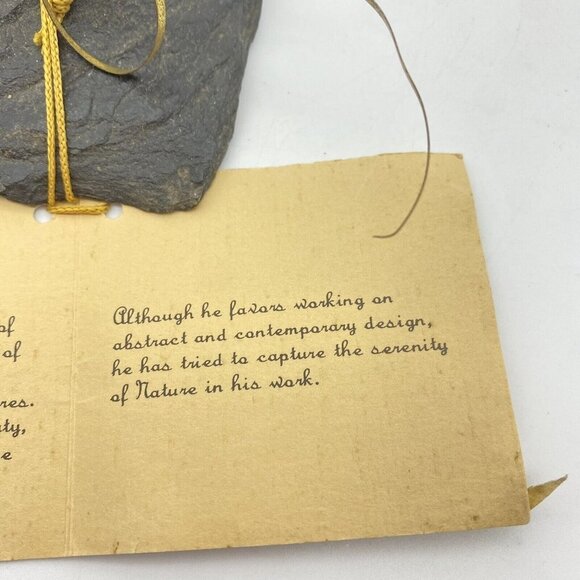 of
of
ty,
e
Although he favors working on
abstract and contemporary design,
he has tried to capture the serenity
of Nature in his work.